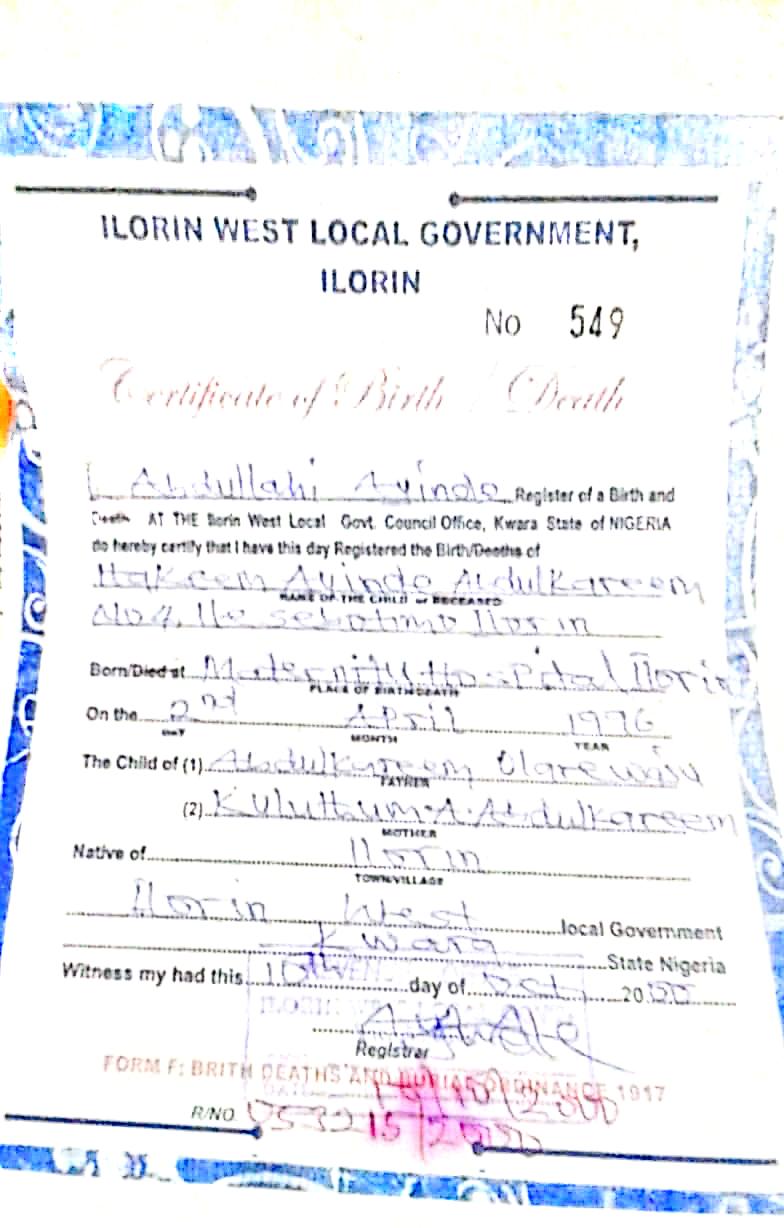 ILORIN WEST LOCAL GOVERNMENT,
ILORIN
No 549
Certificate of Birth / Death
I Abdullahi Ayinde Register of a Birth and
Death AT THE Ilorin West Local Govt. Council Office, Kwara State of NIGERIA
do hereby certify that I have this day Registered the Birth/Deaths of
Hakeem Ayinde Abdulkareem
NAME OF THE CHILD or DECEASED
No 4, Ile Ilorin
Born/Died at Maternity Hospital Ilorin
PLACE OF BIRTH/DEATH
On the 2nd April 1996
DAY MONTH YEAR
The Child of (1) Abdulkareem Olarewaju
FATHER
(2) Kuluthum A. Abdulkareem
MOTHER
Native of Ilorin
TOWN/VILLAGE
Ilorin West local Government
Kwara State Nigeria
Witness my had this 10th day of Oct, 2000
Registrar
FORM F: BRITH DEATHS AND BURIAL ORDINANCE 1917
R/NO